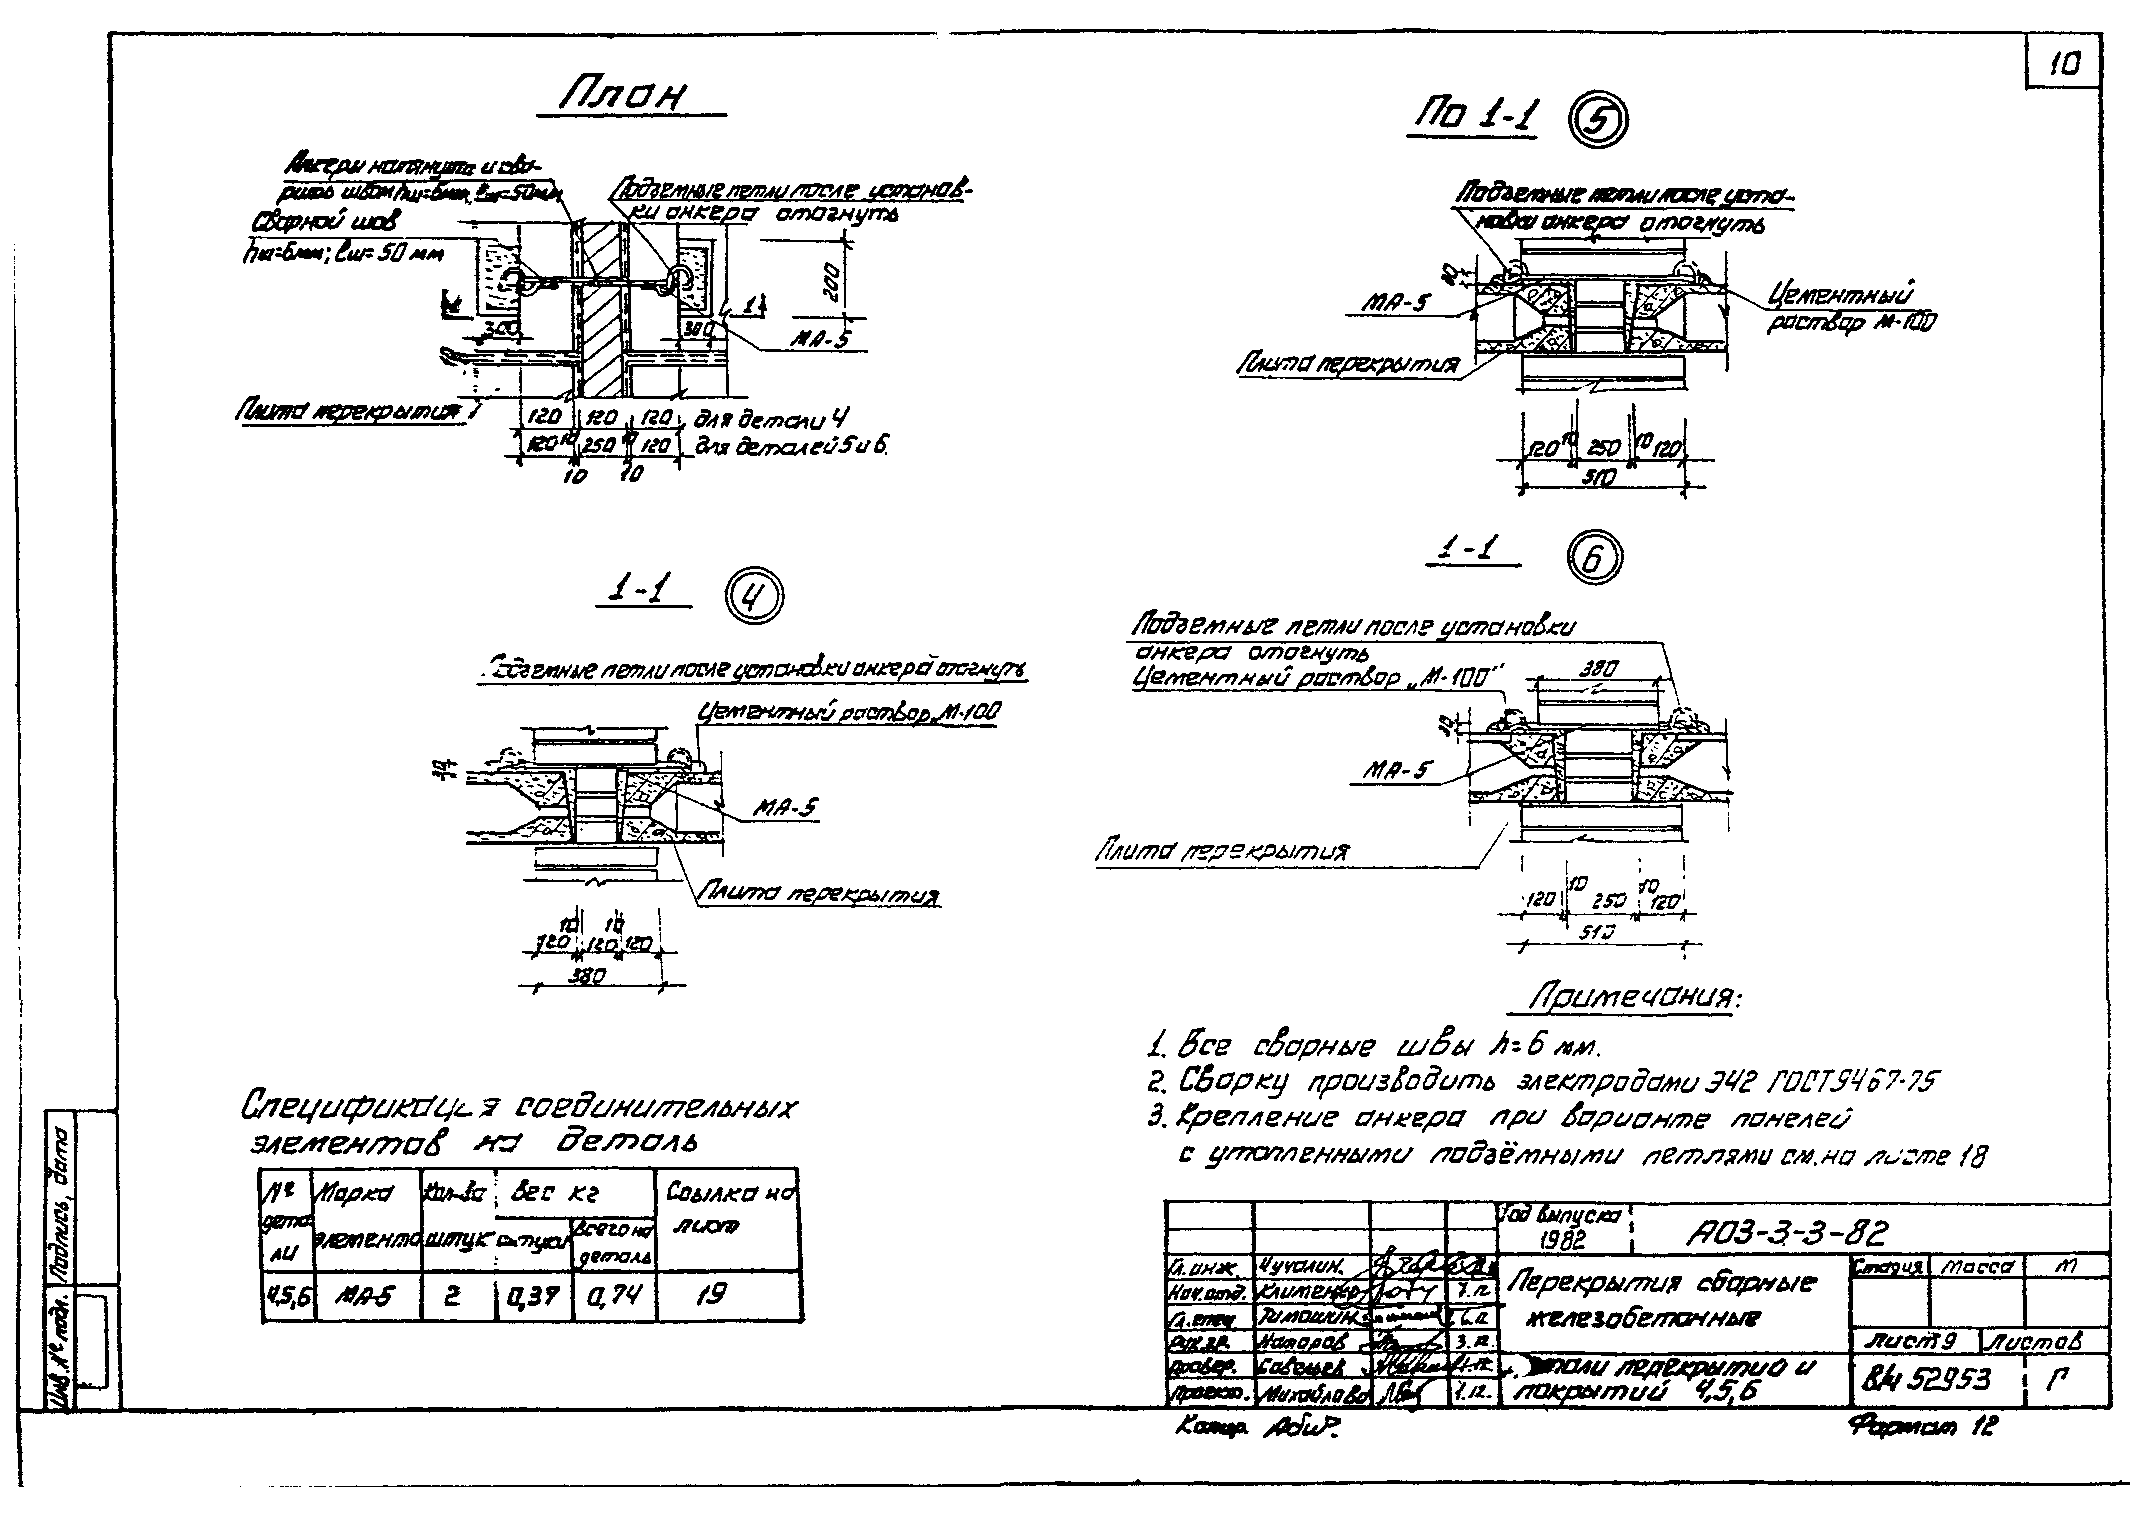 10
План
Анкеры натянуть и сва-
рить швом hш=6мм, ℓш=50мм
Сварной шов
hш=6мм; ℓш=50 мм
Подъемные петли после установ-
ки анкера отогнуть
200
1
1
300
300
МА-5
10
Плита перекрытия
120 120 120 для детали 4
120 10 250 10 120 для деталей 5 и 6.
10 10
По 1-1 5
Подъемные петли после уста-
новки анкера отогнуть
МА-5
Цементный
раствор М-100
Плита перекрытия
120 10 250 10 120
510
1-1 4
Подъемные петли после установки анкера отогнуть
Цементный раствор М-100
МА-5
Плита перекрытия
10 10
120 120 120
380
1-1 6
Подъемные петли после установки
анкера отогнуть
Цементный раствор „М-100"
380
МА-5
Плита перекрытия
10 10
120 250 120
510
Примечания:
1. Все сварные швы h=6 мм.
2. Сварку производить электродами Э42 ГОСТ 9467-75
3. Крепление анкера при варианте панелей
с утопленными подъёмными петлями см. на листе 18
Спецификация соединительных
элементов на деталь
№ детали Марка элемента Кол-во штук Вес кг Ссылка на лист
штуки Всего на деталь
4,5,6 МА-5 2 0,37 0,74 19
Год выпуска
1982
А03-3-3-82
Гл. инж. Чучалин.
Нач. отд. Клименко 7.12
Гл. спец. Тимошкин
Рук. гр. Назаров 3.12
Провер. Савельев
Проект. Михайлова 1.12.
Перекрытия сборные
железобетонные
Стадия Масса М
Лист 9 Листов
Детали перекрытий и
покрытий 4,5,6
ВИ 52953 Г
Копир. Формат 12
Подпись, дата
Инв. № подл.